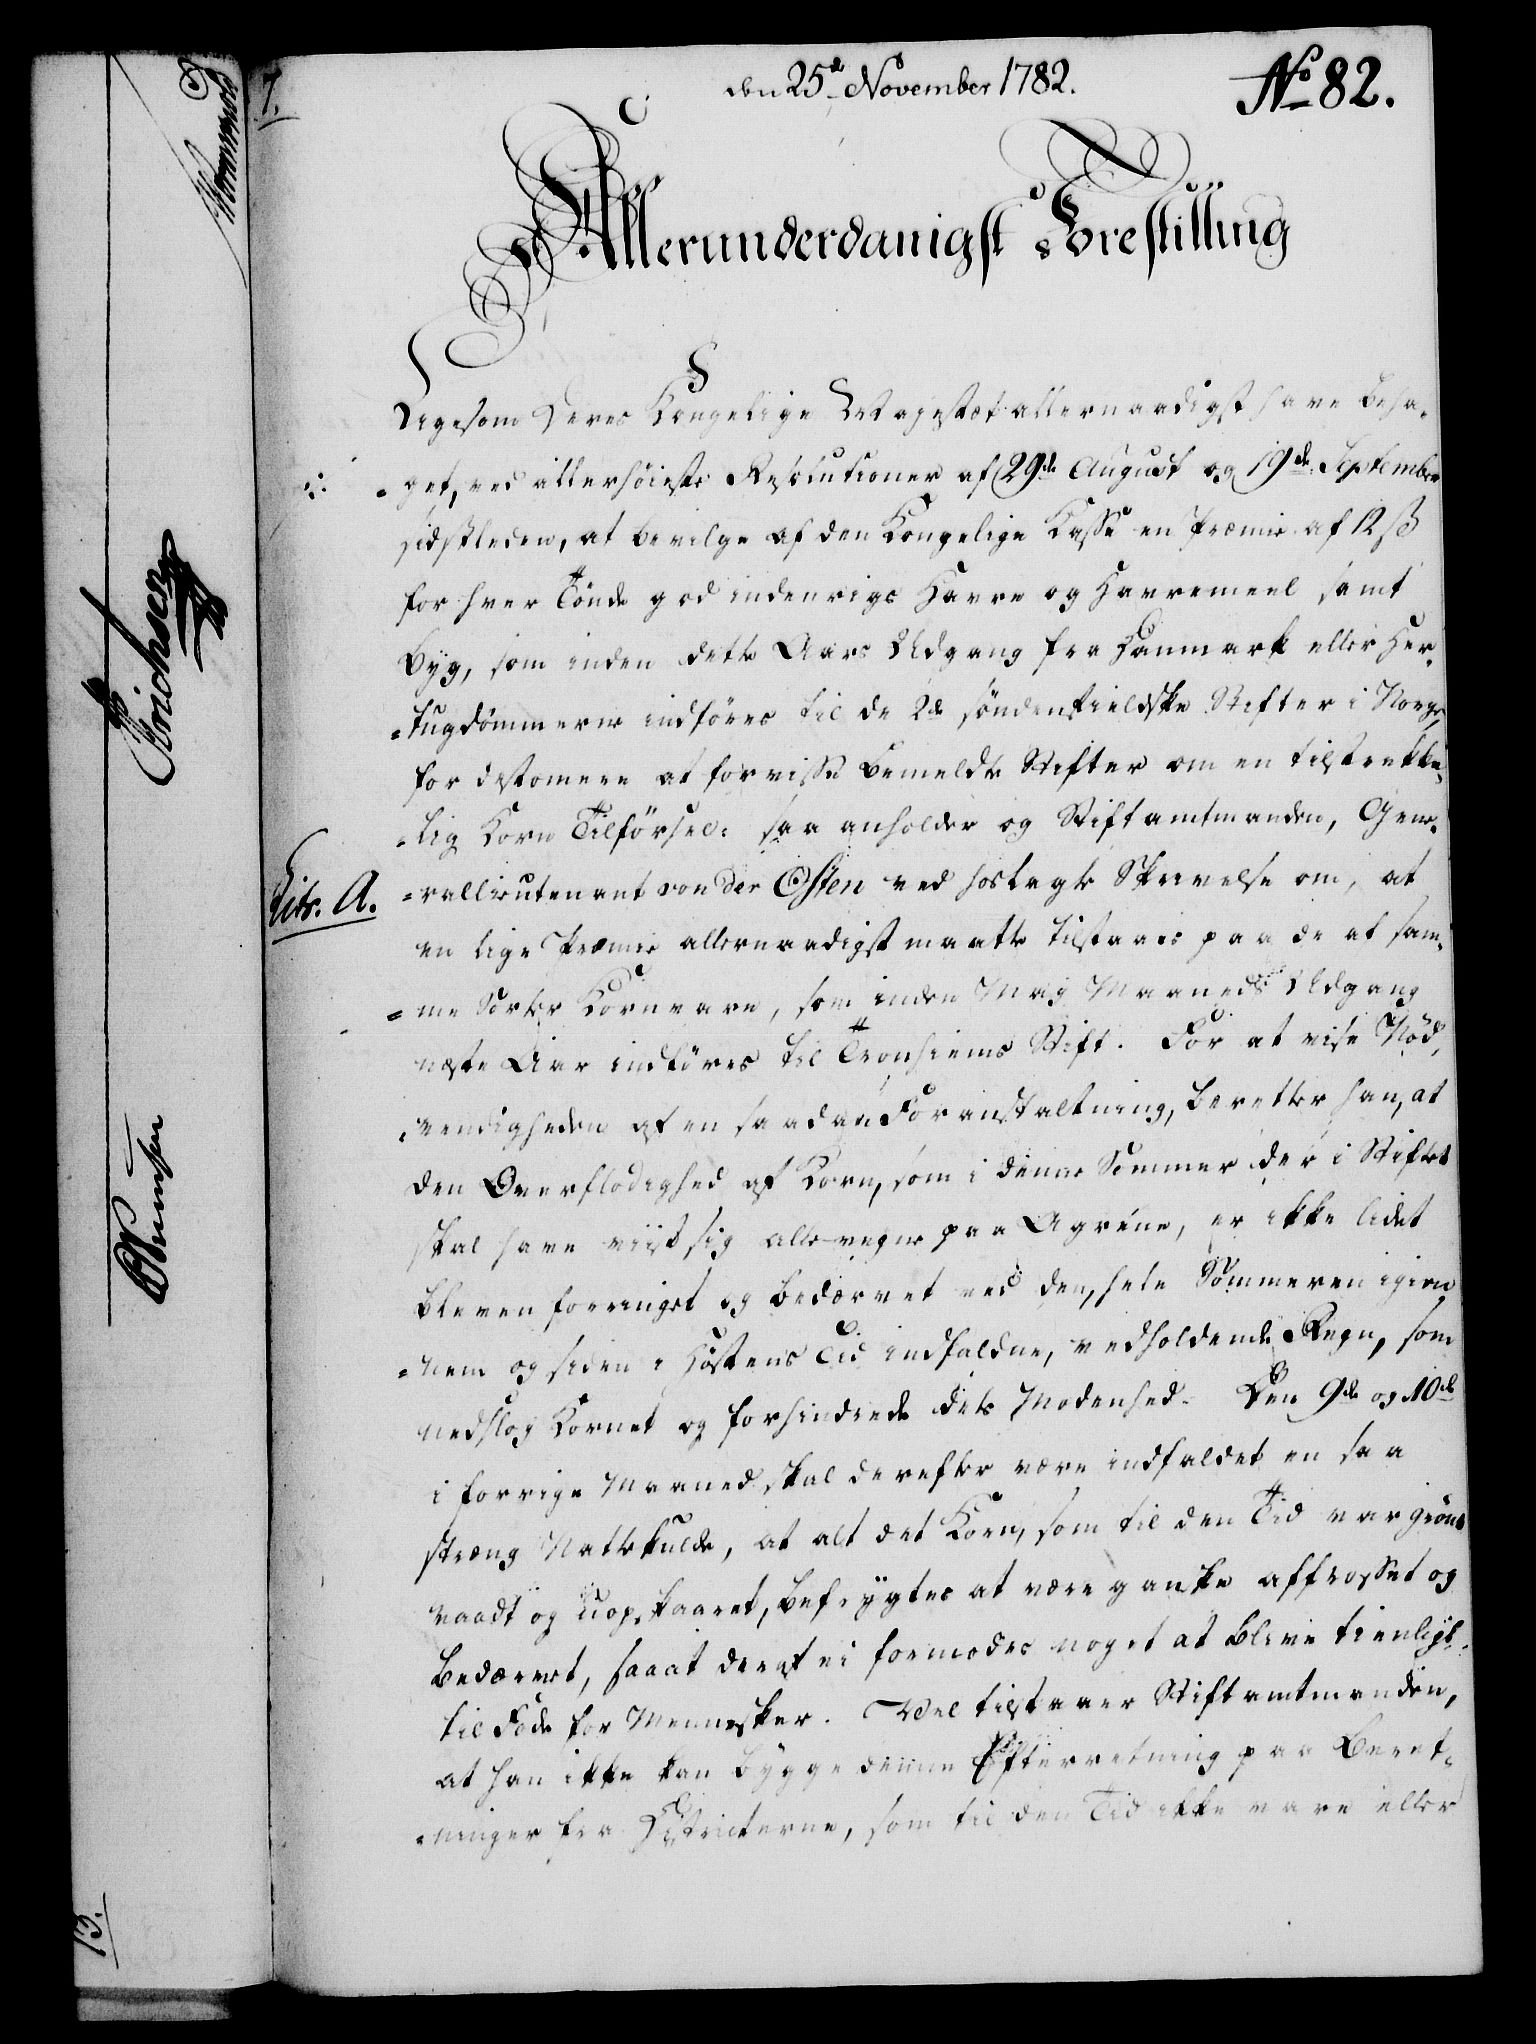 den 25de November 1782.
No 82.
7.
Allerunderdanigst Forestilling
Ligesom Deres Kongelige Majestæt allernaadigst have beha-
=get, ved allerhöieste Resolutioner af 29de August og 19de September
sidstleden, at bevilge af den Kongelige Kasse en Præmie af 12 ß
for hver Tönde god indenrigs Havre og Havremeel samt
Byg, som inden dette Aars Udgang fra Danmark eller Her-
=tugdömmerne indföres til de 2de söndenfieldske Stifter i Norge,
for destomere at forvisse bemeldte Stifter om en tilstrække-
=lig Korn Tilförsel: saa anholder og Stiftamtmanden, Gene-
Litr. A.
=rallieutenant von der Osten ved hoslagte Skrivelse om, at
en lige Præmie allernaadigst maatte tilstaaes paa de af sam-
=me Sorter Kornvare, som inden Maj Maaneds Udgang
næste Aar indföres til Tronhiems Stift. For at vise Nöd-
=vendigheden af en saadan Foranstaltning, beretter han, at
den Overflödighed af Korn, som i denne Sommer der i Stiftet
skal have viist sig allevegne paa Agrene, er ikke lidet
bleven forringet og bedærvet ved den, hele Sommeren igien-
=nem og siden i Höstens Tid indfaldne, vedholdende Regn, som
nedslog Kornet og forhindrede dets Modenhed. Den 9de og 10de
i forrige Maaned skal derefter være indfaldet en saa
stræng Nattekulde, at alt det Korn, som til den Tid var grönt
vaadt og uopskaaret, befrygtes at være ganske affrosset og
bedærvet, saaat deraf ei formodes noget at blive tienligt
til Föde for Mennesker. Vel tilstaaer Stiftamtmanden,
at han ikke kan bygge denne Efterretning paa Beret-
=ninger fra Districterne, som til den Tid ikke vare eller
Erichsen
13.